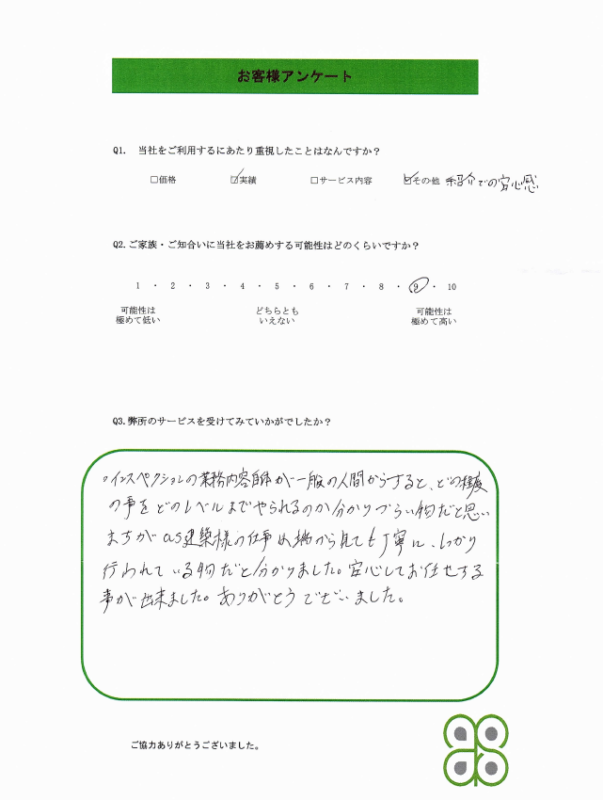 お客様アンケート
Q1. 当社をご利用するにあたり重視したことはなんですか？
□価格 ☑実績 □サービス内容 ☑その他 ご紹介での安心感
Q2.ご家族・ご知合いに当社をお薦めする可能性はどのくらいですか？
1 ・ 2 ・ 3 ・ 4 ・ 5 ・ 6 ・ 7 ・ 8 ・ 9 ・ 10
可能性は 極めて低い
どちらとも いえない
可能性は 極めて高い
Q3.弊所のサービスを受けてみていかがでしたか？
・インスペクションの業務内容自体が一般の人間からすると、どの程度
の事をどのレベルまでやられるのか分かりづらい物だと思い
ますが as建築様の仕事は端から見ても丁寧に、しっかり
行われている物だと分かりました。安心してお任せする
事が出来ました。ありがとうございました。
ご協力ありがとうございました。